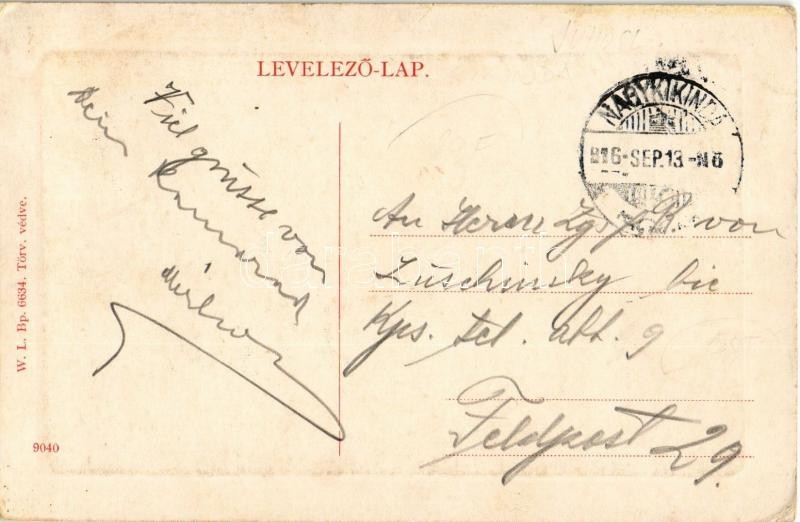 LEVELEZŐ-LAP.
NAGYKIKINDA
916-SEP.13.-N6
Viel grüsse von
Dein Kamarad
An Herrn Zgsf. B. von
Luschinsky bie
Kps. tel. abt. 9
Feldpost 29.
W. L. Bp. 6634. Törv. védve.
9040
darabanth